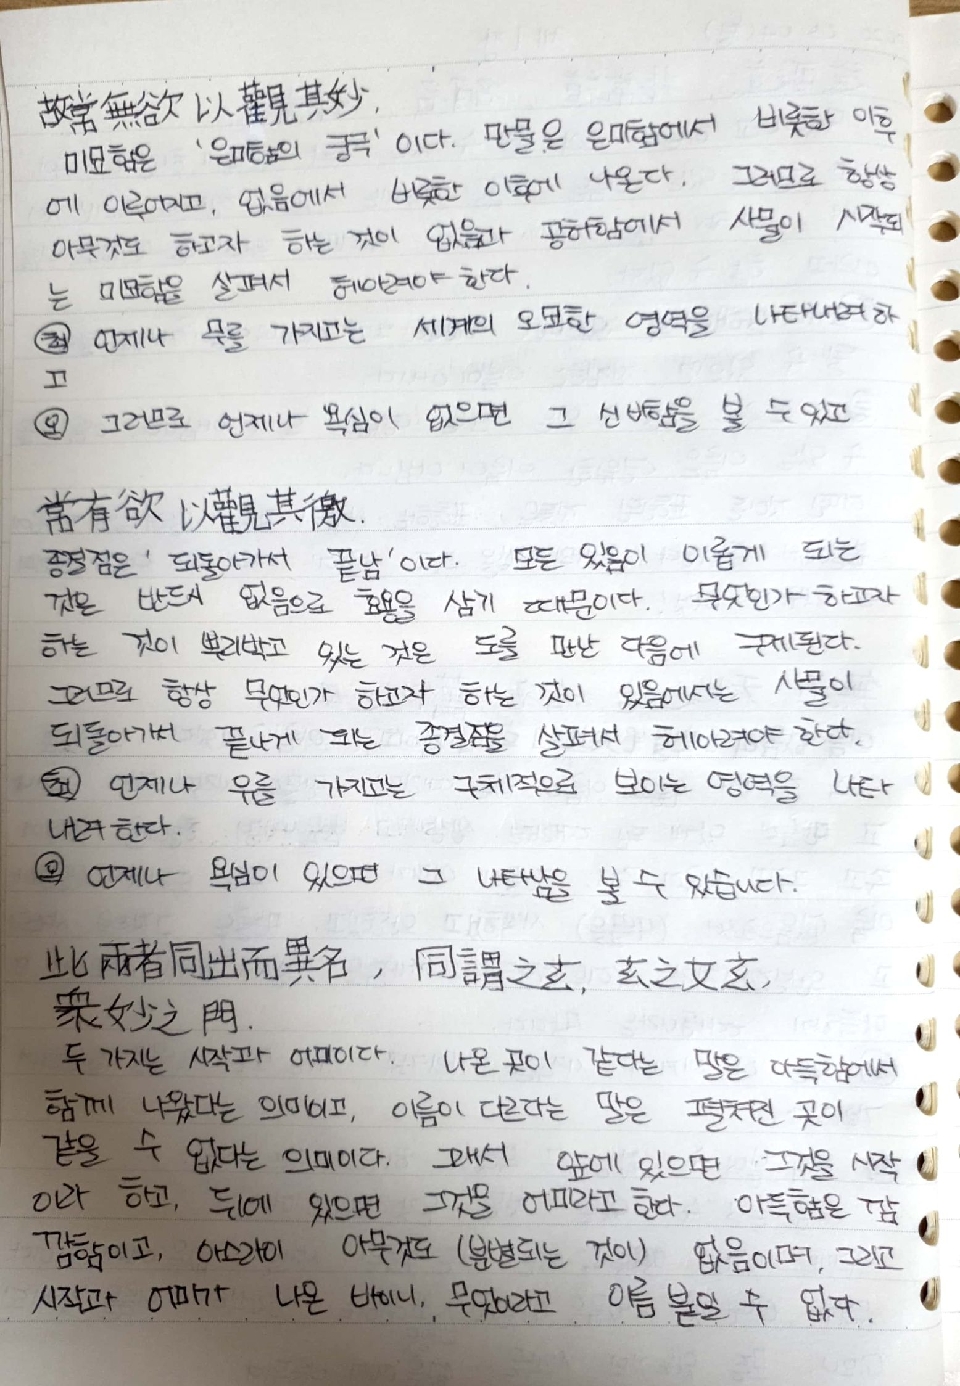 故常無欲 以觀其妙.
미묘함은 '은미함의 궁극'이다. 만물은 은미함에서 비롯한 이후
에 이루어지고, 없음에서 비롯한 이후에 나온다. 그러므로 항상
아무것도 하고자 하는 것이 없음과 공허함에서 사물이 시작되
는 미묘함을 살펴서 헤아려야 한다.
언제나 무를 가지고는 세계의 오묘한 영역을 나타내려 하
고
오 그러므로 언제나 욕심이 없으면 그 신비함을 볼 수 있고
常有欲 以觀其徼.
종결점은 '되돌아가서 끝남'이다. 모든 있음이 이롭게 되는
것은 반드시 없음으로 효용을 삼기 때문이다. 무엇인가 하고자
하는 것이 뿌리박고 있는 것은 도를 만난 다음에 구제된다.
그러므로 항상 무엇인가 하고자 하는 것이 있음에서는 사물이
되돌아가서 끝나게 되는 종결점을 살펴서 헤아려야 한다.
언제나 유를 가지고는 구체적으로 보이는 영역을 나타
내려 한다.
오 언제나 욕심이 있으면 그 나타남을 볼 수 있습니다.
此兩者同出而異名, 同謂之玄, 玄之又玄,
衆妙之門.
두 가지는 시작과 어미이다. 나온 곳이 같다는 말은 아득함에서
함께 나왔다는 의미이고, 이름이 다르다는 말은 펼쳐진 곳이
같을 수 없다는 의미이다. 그래서 앞에 있으면 그것을 시작
이라 하고, 뒤에 있으면 그것을 어미라고 한다. 아득함은 깜
깜함이고, 아스라이 아무것도 (분별되는 것이) 없음이며, 그리고
시작과 어미가 나온 바이니, 무엇이라고 이름 붙일 수 없다.